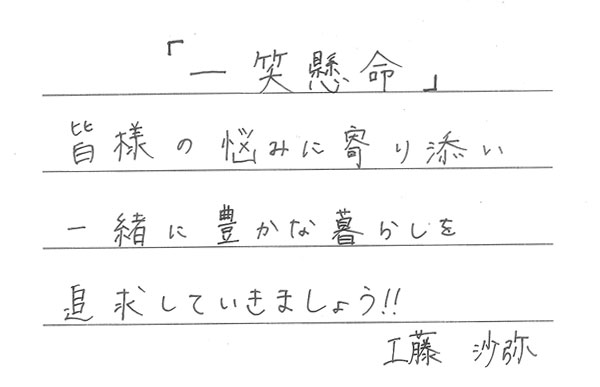 「一笑懸命」
皆様の悩みに寄り添い
一緒に豊かな暮らしを
追求していきましょう!!
工藤 沙弥